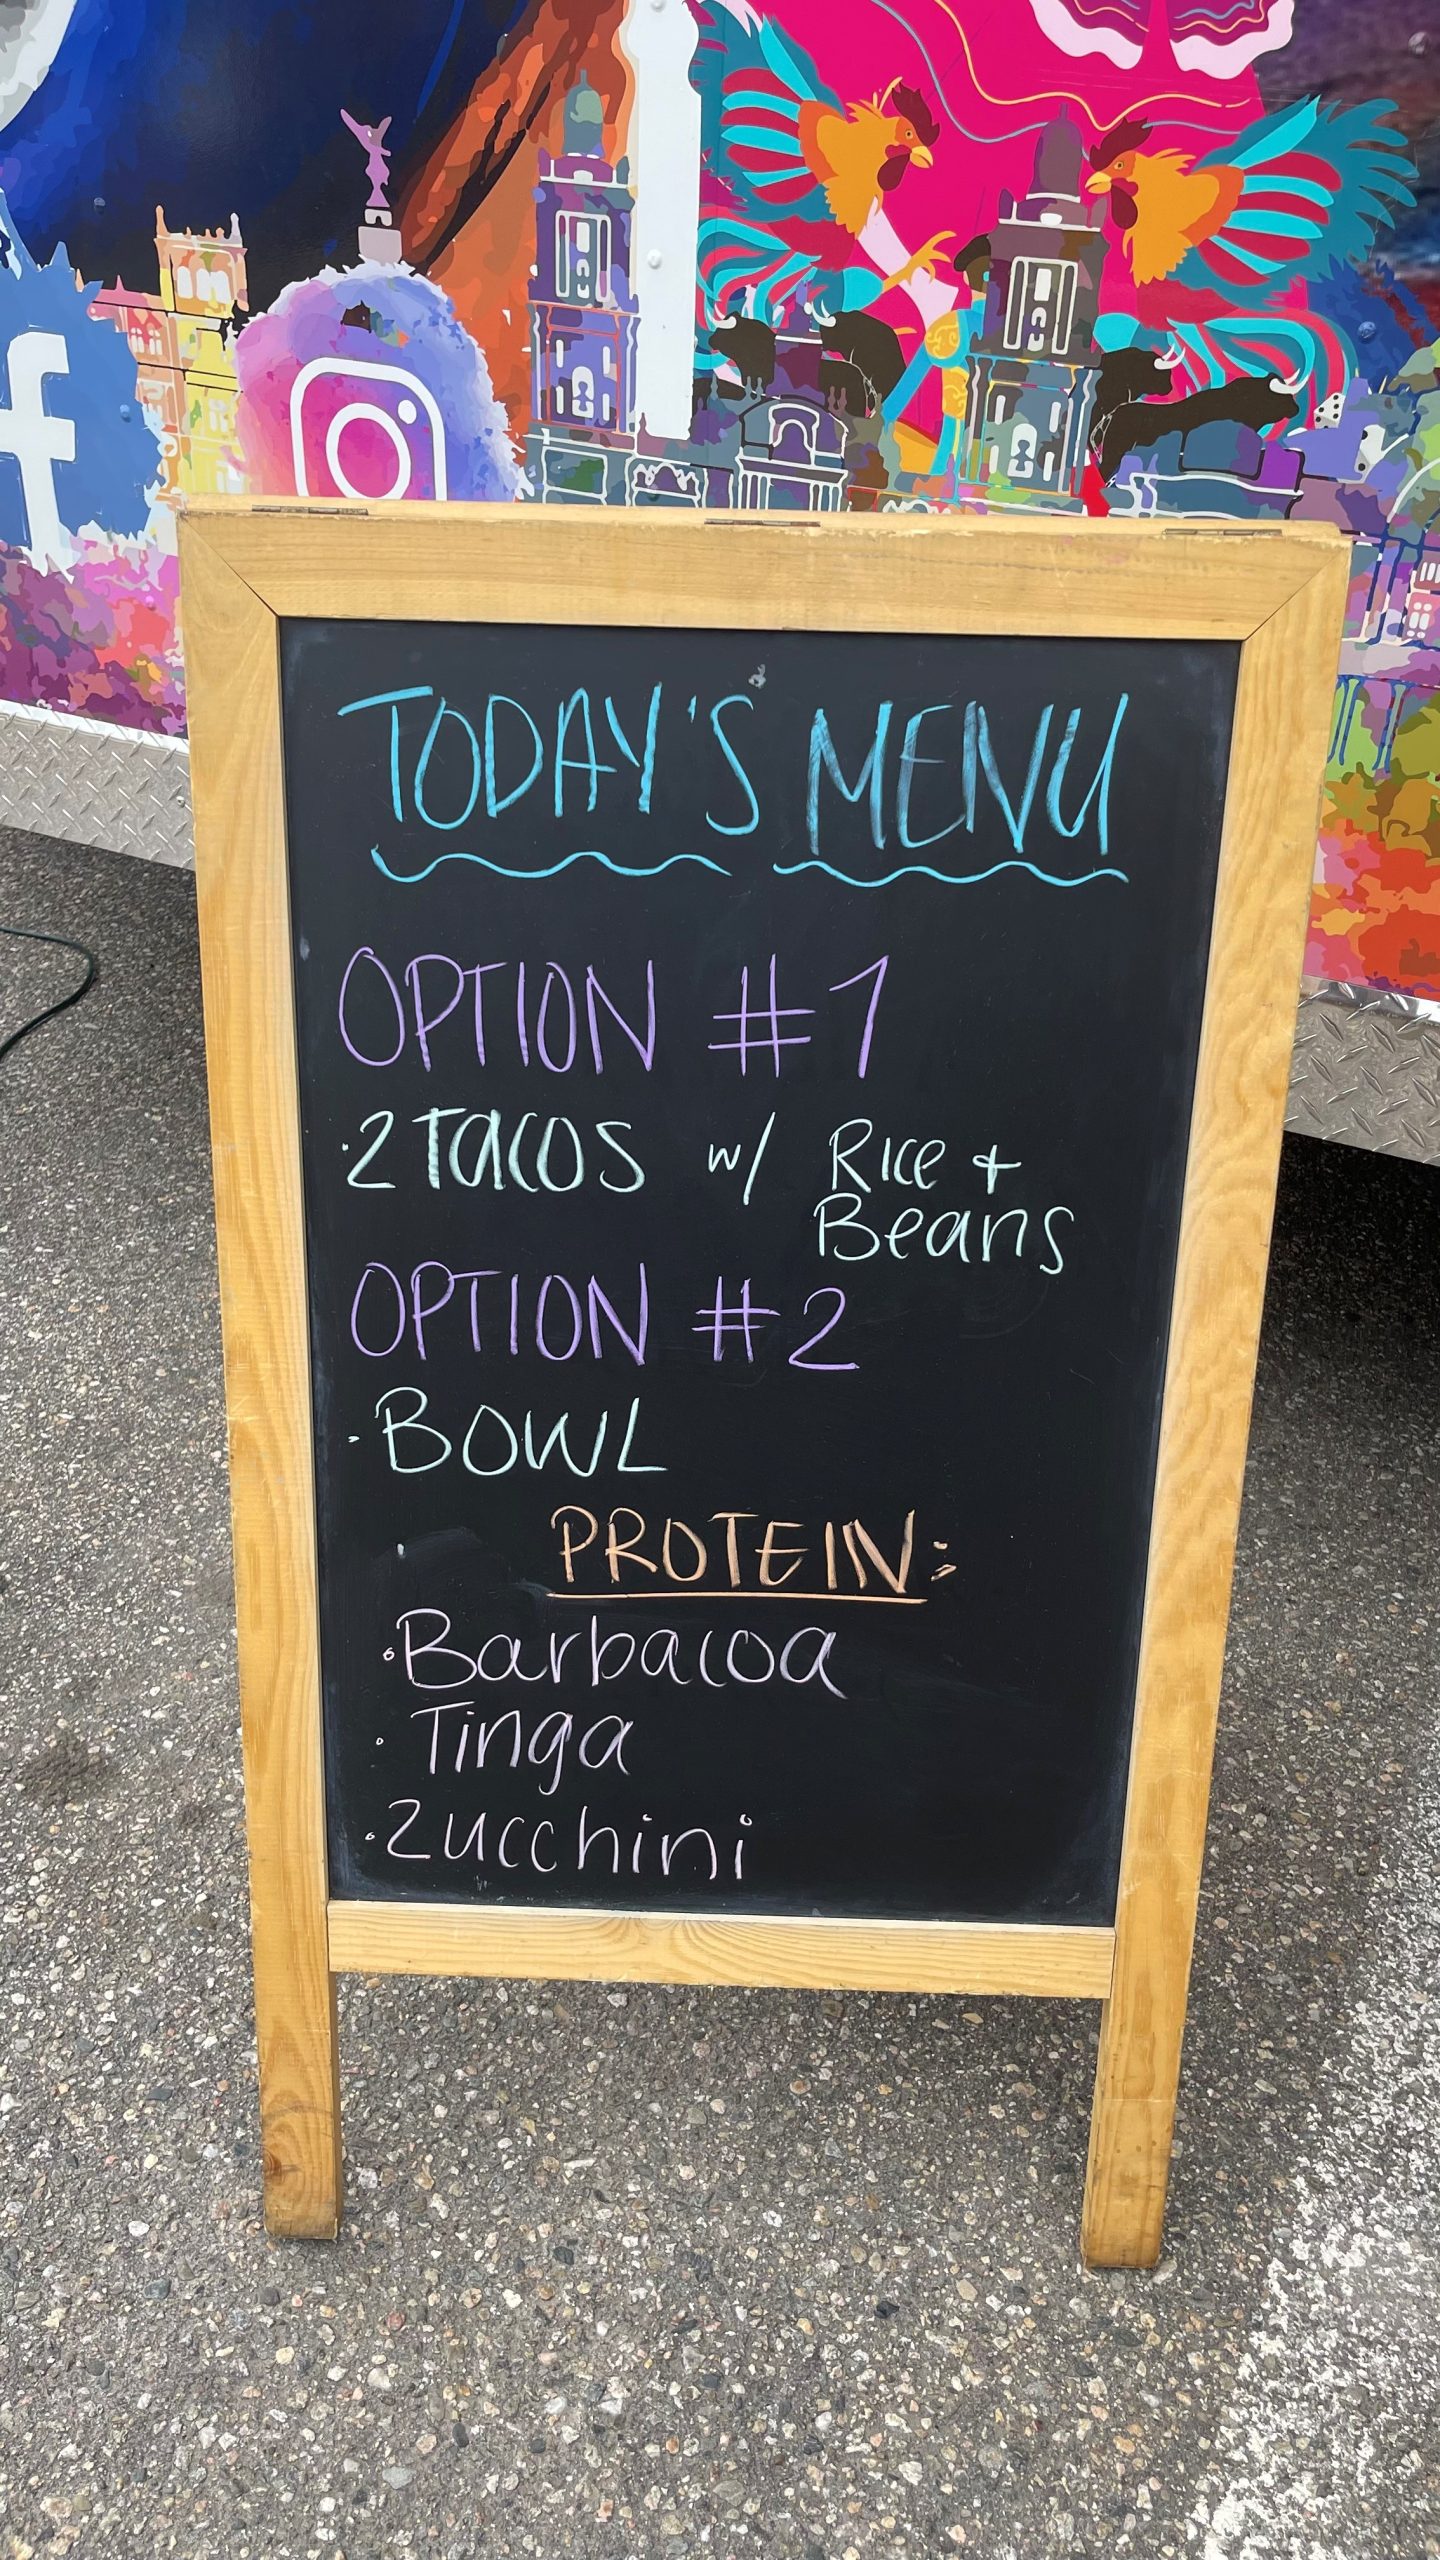 TODAY'S MENU
OPTION #1
·2 TACOS w/ Rice +
Beans
OPTION #2
·BOWL
PROTEIN:
·Barbacoa
·Tinga
·Zucchini
f